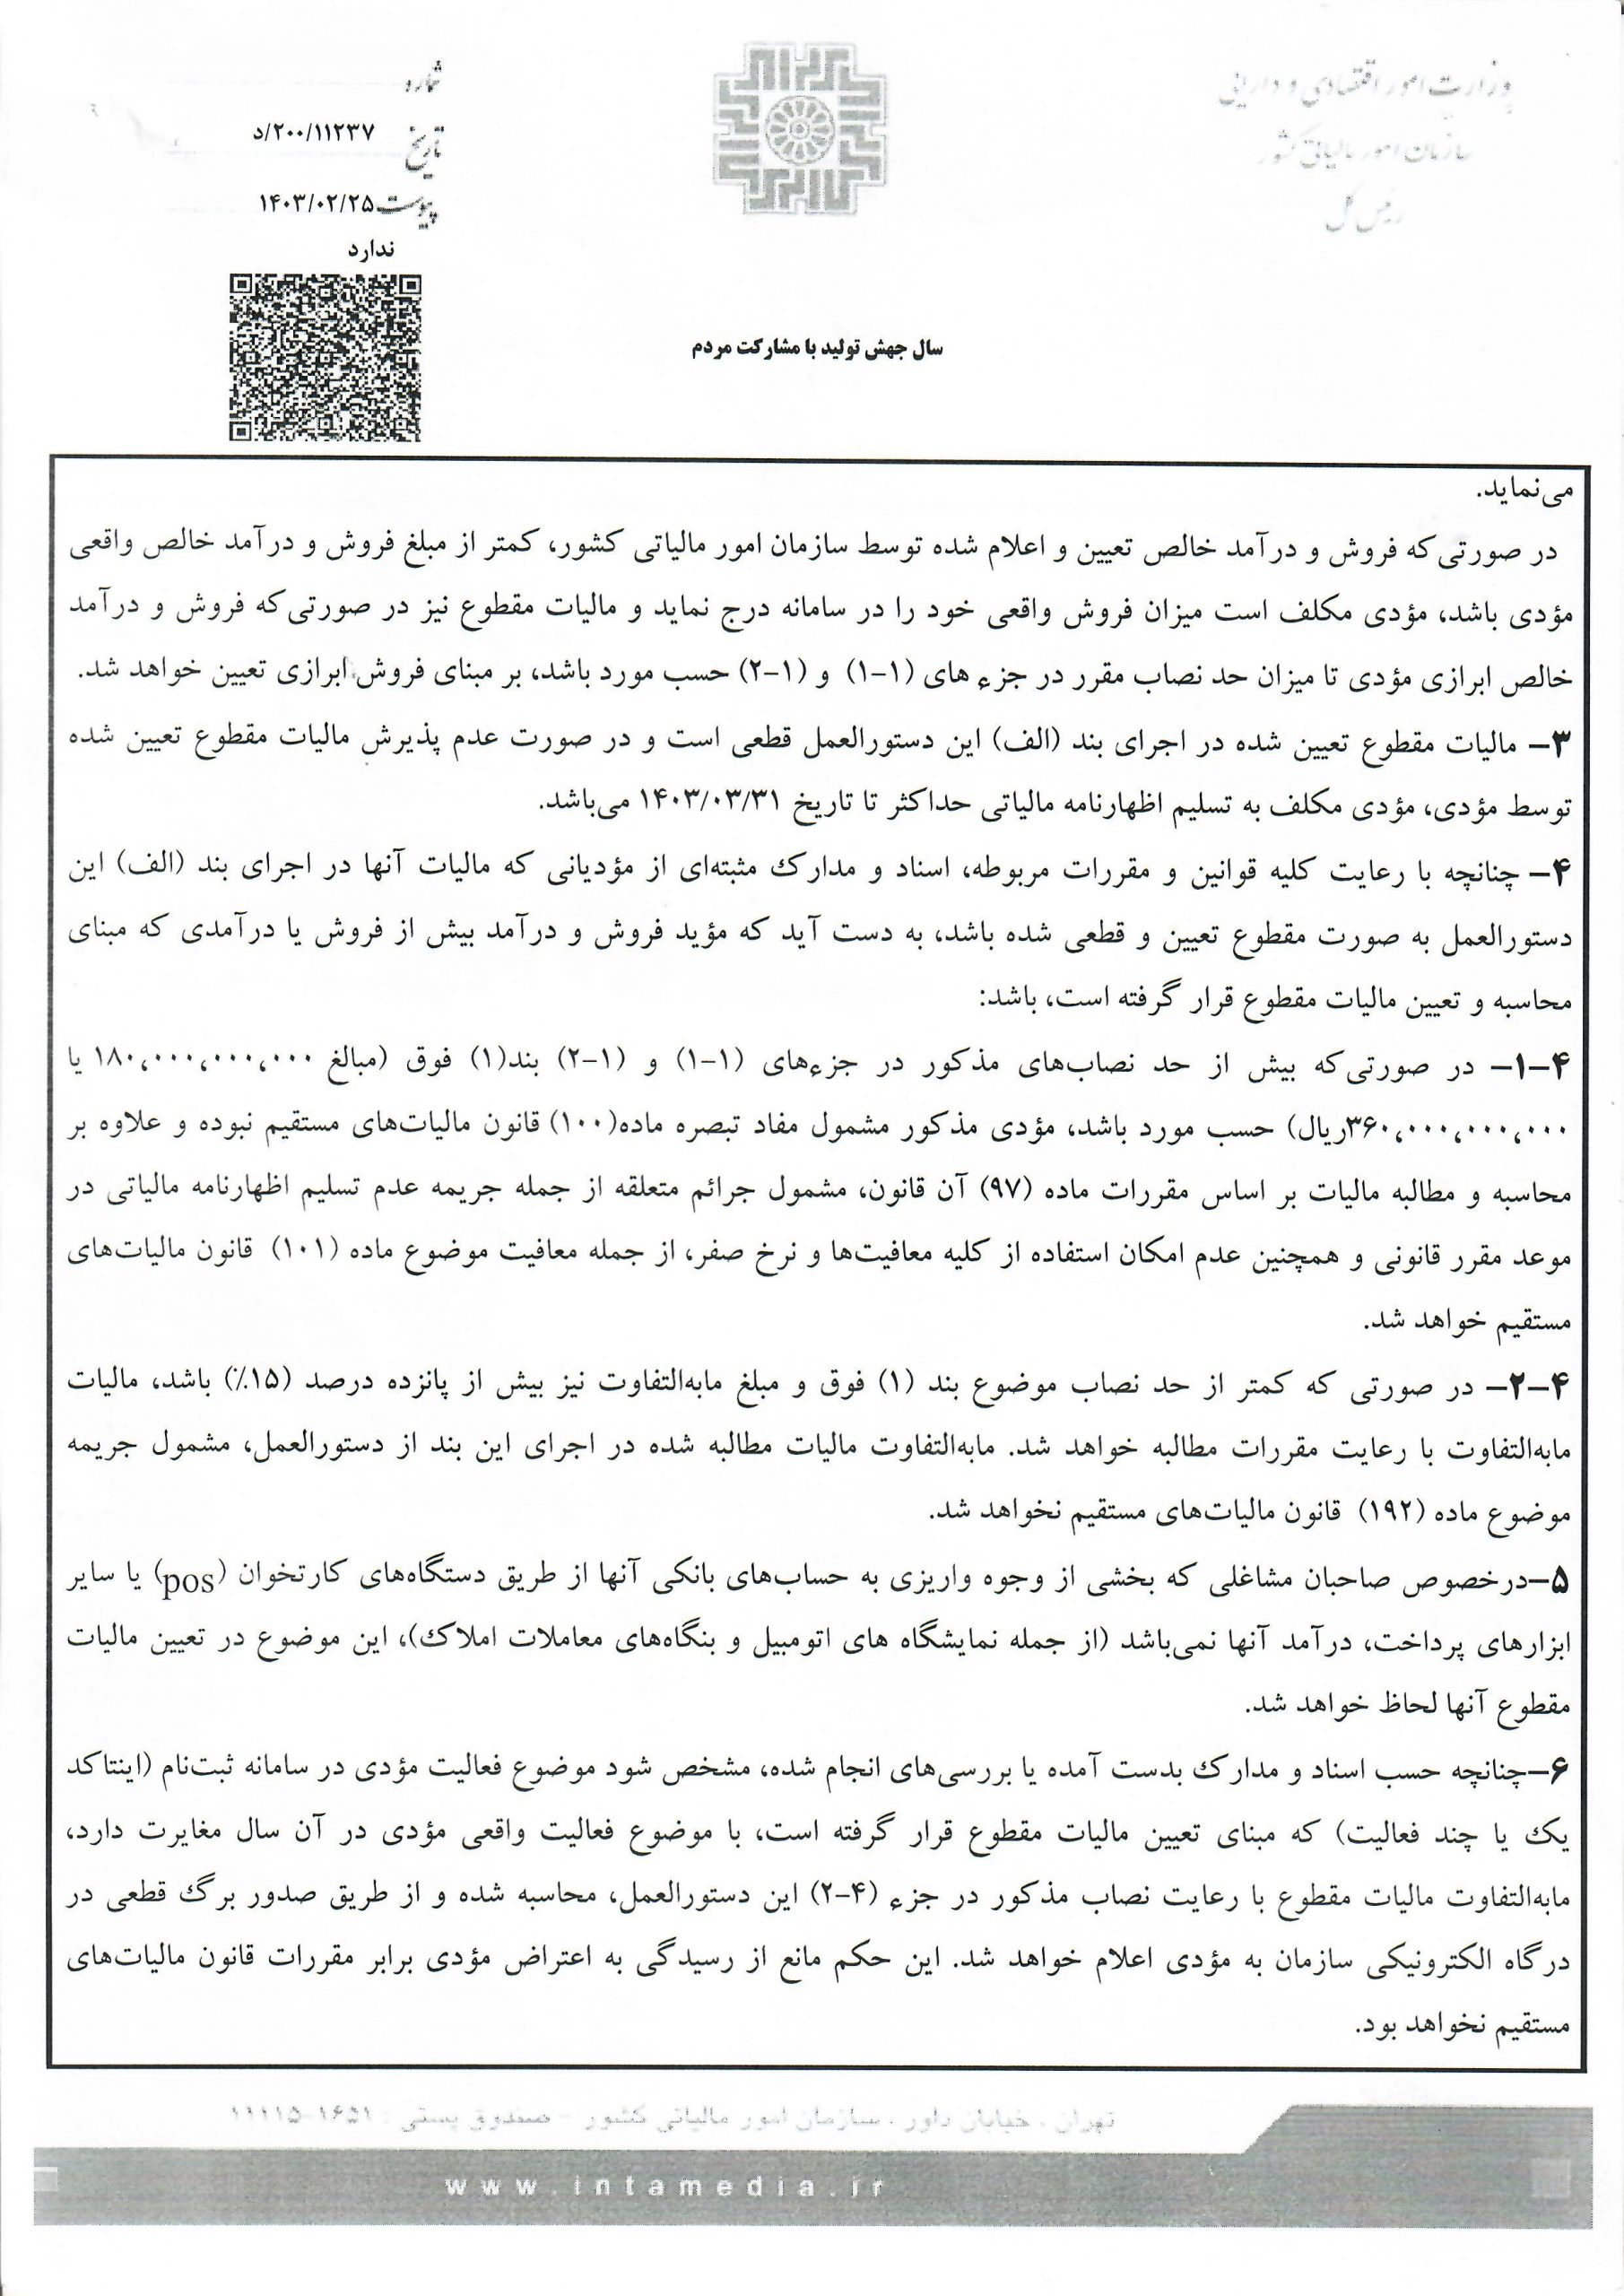 وزارت امور اقتصادی و دارایی
سازمان امور مالیاتی کشور
رئیس کل
شماره
۲۰۰/۱۱۲۳۷/د
تاریخ
۱۴۰۳/۰۲/۲۵
پیوست
ندارد
سال جهش تولید با مشارکت مردم
می‌نماید.
در صورتی‌که فروش و درآمد خالص تعیین و اعلام شده توسط سازمان امور مالیاتی کشور، کمتر از مبلغ فروش و درآمد خالص واقعی
مؤدی باشد، مؤدی مکلف است میزان فروش واقعی خود را در سامانه درج نماید و مالیات مقطوع نیز در صورتی‌که فروش و درآمد
خالص ابرازی مؤدی تا میزان حد نصاب مقرر در جزء های (۱-۱) و (۱-۲) حسب مورد باشد، بر مبنای فروش ابرازی تعیین خواهد شد.
۳- مالیات مقطوع تعیین شده در اجرای بند (الف) این دستورالعمل قطعی است و در صورت عدم پذیرش مالیات مقطوع تعیین شده
توسط مؤدی، مؤدی مکلف به تسلیم اظهارنامه مالیاتی حداکثر تا تاریخ ۱۴۰۳/۰۳/۳۱ می‌باشد.
۴- چنانچه با رعایت کلیه قوانین و مقررات مربوطه، اسناد و مدارک مثبته‌ای از مؤدیانی که مالیات آنها در اجرای بند (الف) این
دستورالعمل به صورت مقطوع تعیین و قطعی شده باشد، به دست آید که مؤید فروش و درآمد بیش از فروش یا درآمدی که مبنای
محاسبه و تعیین مالیات مقطوع قرار گرفته است، باشد:
۴-۱- در صورتی‌که بیش از حد نصاب‌های مذکور در جزءهای (۱-۱) و (۱-۲) بند(۱) فوق (مبالغ ۱۸۰،۰۰۰،۰۰۰،۰۰۰ یا
۳۶۰،۰۰۰،۰۰۰،۰۰۰ریال) حسب مورد باشد، مؤدی مذکور مشمول مفاد تبصره ماده(۱۰۰) قانون مالیات‌های مستقیم نبوده و علاوه بر
محاسبه و مطالبه مالیات بر اساس مقررات ماده (۹۷) آن قانون، مشمول جرائم متعلقه از جمله جریمه عدم تسلیم اظهارنامه مالیاتی در
موعد مقرر قانونی و همچنین عدم امکان استفاده از کلیه معافیت‌ها و نرخ صفر، از جمله معافیت موضوع ماده (۱۰۱) قانون مالیات‌های
مستقیم خواهد شد.
۴-۲- در صورتی که کمتر از حد نصاب موضوع بند (۱) فوق و مبلغ مابه‌التفاوت نیز بیش از پانزده درصد (۱۵٪) باشد، مالیات
مابه‌التفاوت با رعایت مقررات مطالبه خواهد شد. مابه‌التفاوت مالیات مطالبه شده در اجرای این بند از دستورالعمل، مشمول جریمه
موضوع ماده (۱۹۲) قانون مالیات‌های مستقیم نخواهد شد.
۵-درخصوص صاحبان مشاغلی که بخشی از وجوه واریزی به حساب‌های بانکی آنها از طریق دستگاه‌های کارتخوان (pos) یا سایر
ابزارهای پرداخت، درآمد آنها نمی‌باشد (از جمله نمایشگاه های اتومبیل و بنگاه‌های معاملات املاک)، این موضوع در تعیین مالیات
مقطوع آنها لحاظ خواهد شد.
۶-چنانچه حسب اسناد و مدارک بدست آمده یا بررسی‌های انجام شده، مشخص شود موضوع فعالیت مؤدی در سامانه ثبت‌نام (اینتاکد
یک یا چند فعالیت) که مبنای تعیین مالیات مقطوع قرار گرفته است، با موضوع فعالیت واقعی مؤدی در آن سال مغایرت دارد،
مابه‌التفاوت مالیات مقطوع با رعایت نصاب مذکور در جزء (۴-۲) این دستورالعمل، محاسبه شده و از طریق صدور برگ قطعی در
درگاه الکترونیکی سازمان به مؤدی اعلام خواهد شد. این حکم مانع از رسیدگی به اعتراض مؤدی برابر مقررات قانون مالیات‌های
مستقیم نخواهد بود.
تهران ، خیابان داور ، سازمان امور مالیاتی کشور - صندوق پستی : ۱۶۵۱-۱۱۱۱۵
www.intamedia.ir